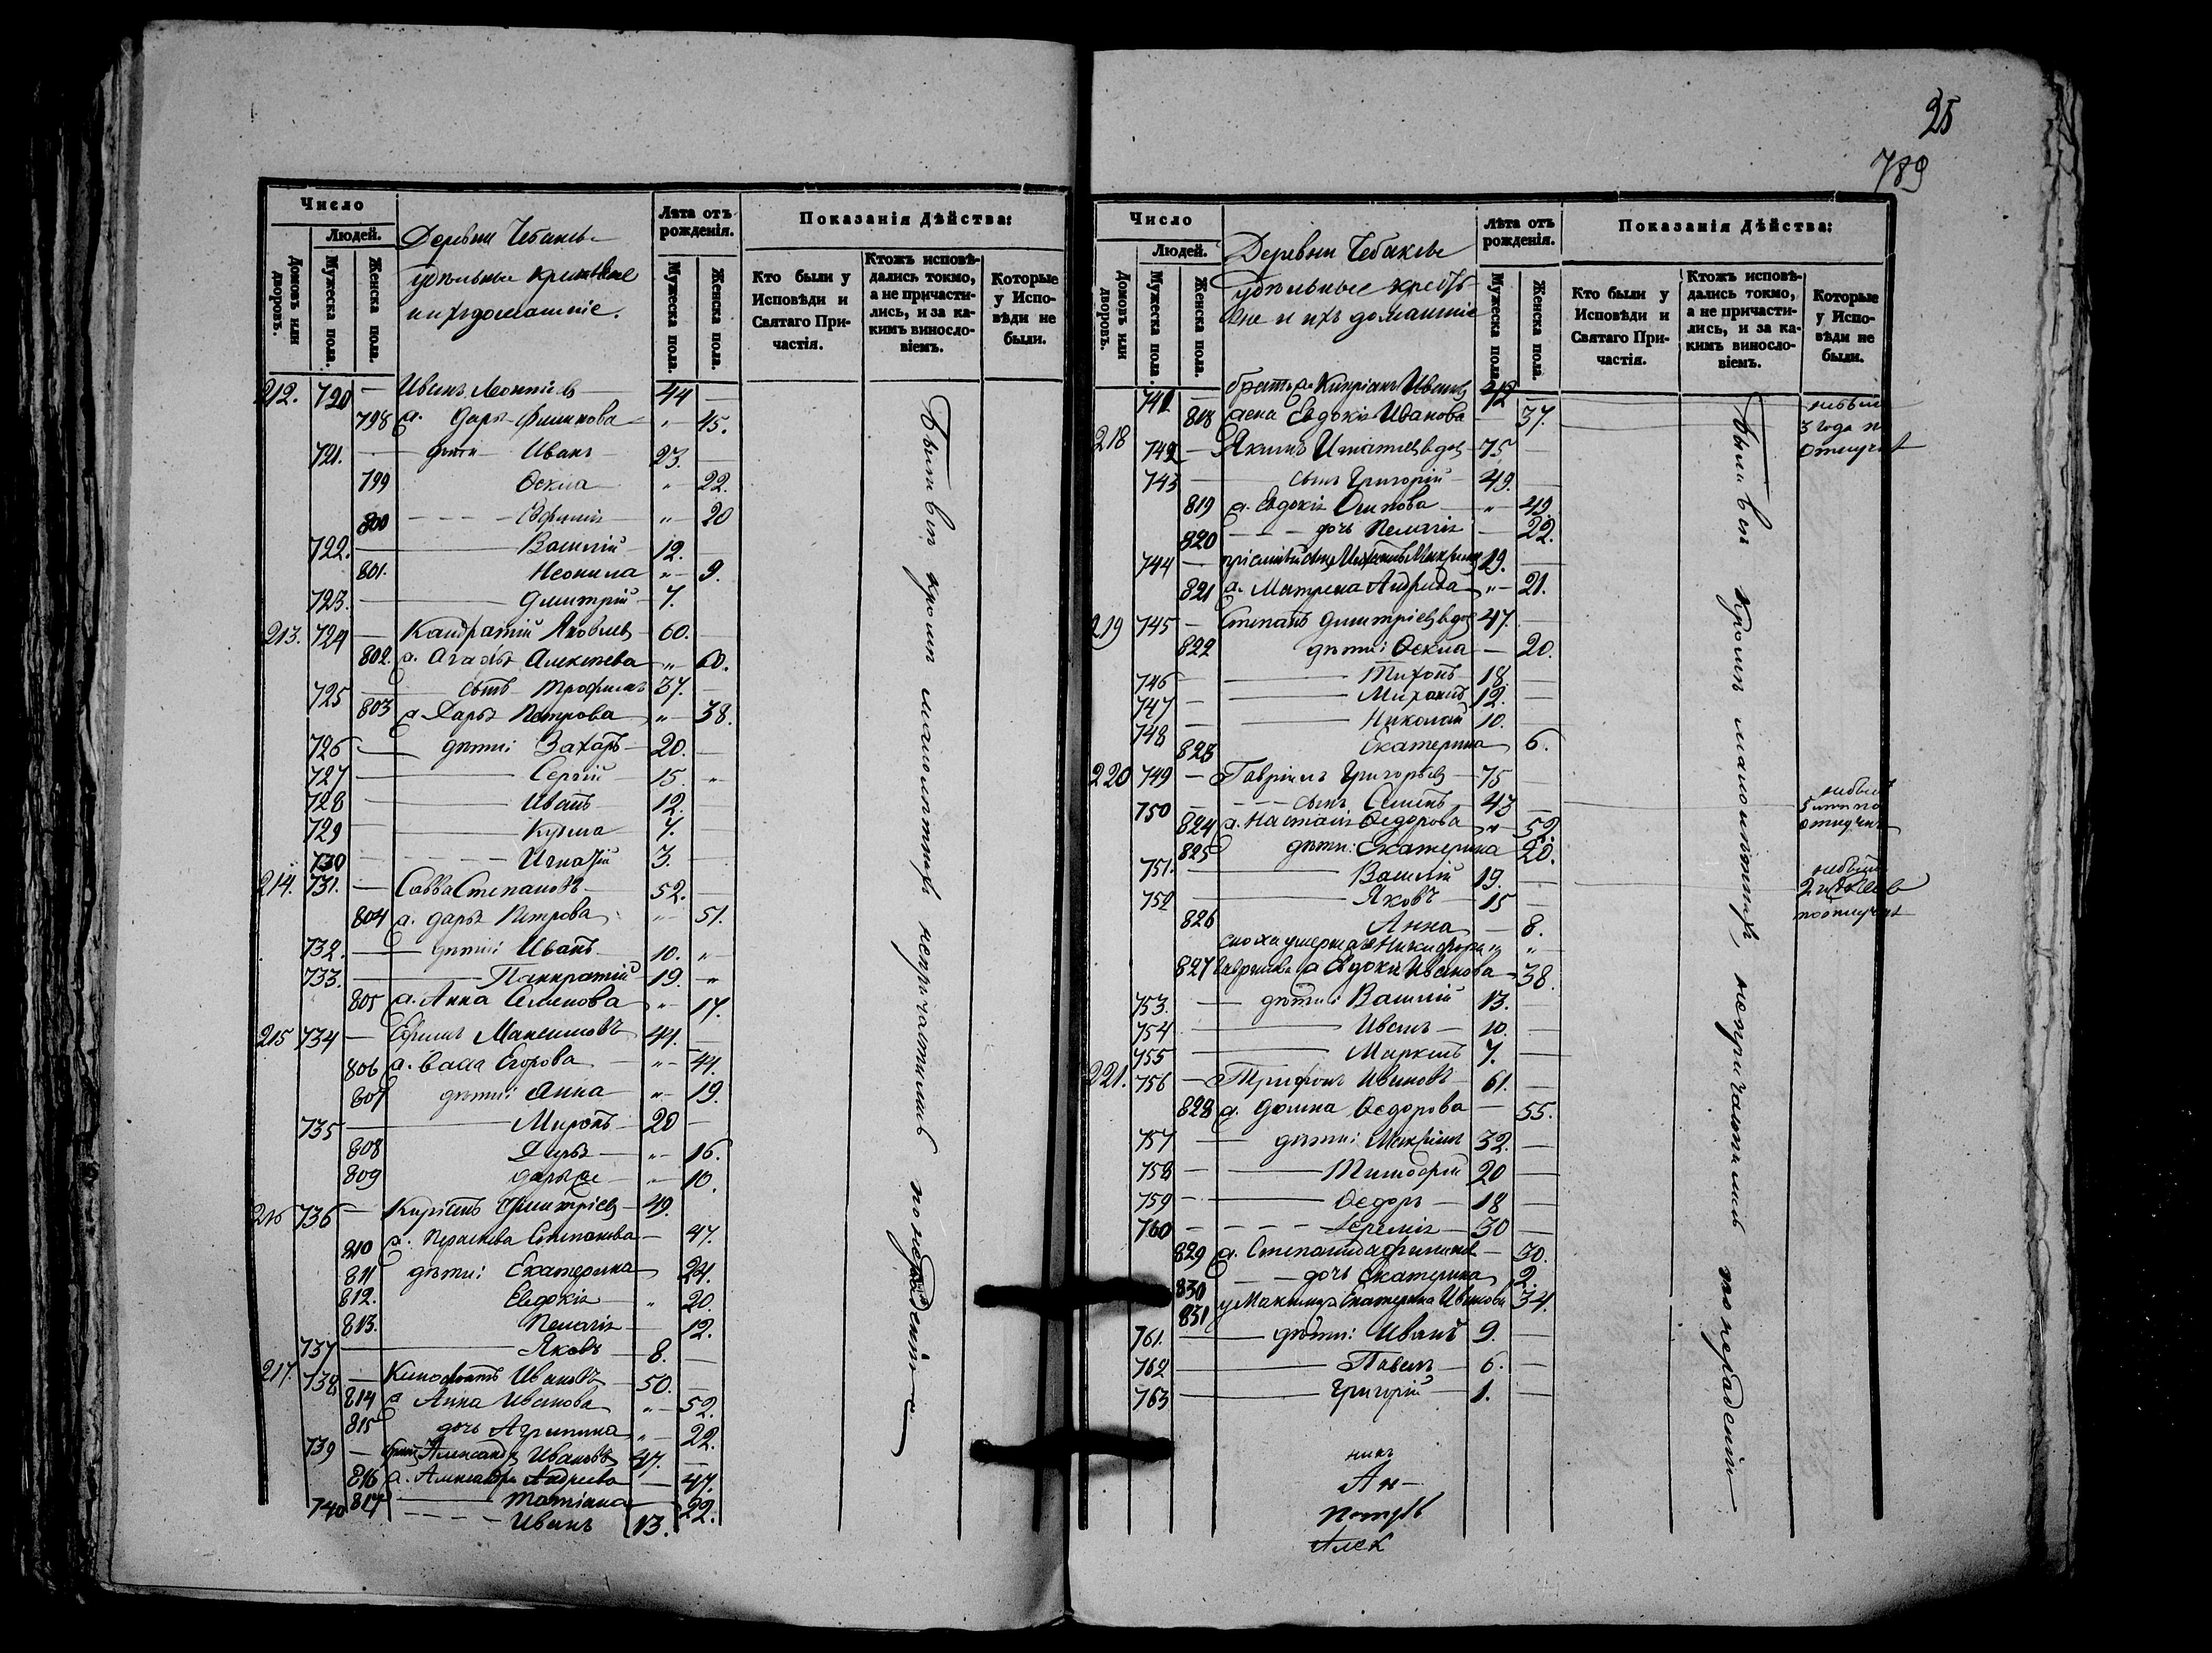 Число
Людей.
Домовъ или дворовъ.
Мужеска пола.
Женска пола.
Деревни Чебаклы
удѣльные крестьяне
и ихъ домашніе.
Лѣта отъ рожденія.
Мужеска пола.
Женска пола.
Показанія Дѣйства:
Кто были у Исповѣди и Святаго Причастія.
Ктожъ исповѣдались токмо, а не причастились, и за какимъ винословіемъ.
Которые у Исповѣди не были.
212. 720 — Иванъ Леонтіевъ — 44 —
798 ж. Дарья — " 45.
721. — дѣти Иванъ 23. —
799 Ѳекла " 22.
800 " 20
722. — Василій 12. —
801. Неонила " 9.
723. — Димитрій 7.
213. 724 — Кандратій Яковлевъ — 60. —
802. ж. Агафья Алексѣева " 60.
725 — сынъ Трофимъ 37. —
803 ж. Дарья Петрова " 38.
726 — дѣти: Захаръ — 20. —
727 — Сергій 15. "
728 — Иванъ 12. —
729 — Кузма 7. —
730 — Игнатій 3. —
214. 731. — Савва Степановъ — 52. —
804 ж. Дарья Петрова " 51.
732. — дѣти: Иванъ 10. "
733. — Панкратій 19. "
805 ж. Анна Семенова " 17.
215 734 — Ефимъ Максимовъ 44. —
806 ж. Васса Егорова " 44.
807 дѣти: Анна " 19.
735 — Миронъ — 20 —
808 Дарья " 16.
809 " 10.
216 736 — Димитріевъ — 49.
810 ж. Параскева Степанова — 47.
811 дѣти: Екатерина 24.
812. Евдокія " 20.
813. Пелагія 12.
737 — Яковъ 8. —
217. 738 — Ивановъ 50. —
814 ж Анна Иванова " 52.
815 дочь Агрипина " 22.
739 — братъ Александръ Ивановъ 47. —
816 ж. Александра Андреева — 47.
817 — Татіана 22.
740 — Иванъ 13.
Были всѣ кромѣ малолѣтнихъ непричастились по нерадѣнію
25
789
Число
Людей.
Домовъ или дворовъ.
Мужеска пола.
Женска пола.
Деревни Чебаклы
удѣльные крестья-
не и ихъ домашніе
Лѣта отъ рожденія.
Мужеска пола.
Женска пола.
Показанія Дѣйства:
Кто были у Исповѣди и Святаго Причастія.
Ктожъ исповѣдались токмо, а не причастились, и за какимъ винословіемъ.
Которые у Исповѣди не были.
741 — братъ Кипріанъ Ивановъ 42
818 жена Евдокія Иванова — 37.
3 года по
отлучкѣ
218 742 — Якимъ Игнатіевъ вдов 75 —
743 — сынъ Григорій — 49. —
819 ж. Евдокія Осипова " 49.
820 — дочь Пелагія — 22.
744 — 19. —
821 ж. Матрена " 21.
219 745 — Степанъ Димитріевъ вдов 47. —
822 дѣти: Ѳекла — 20.
746 — Тихонъ 18. —
747 — Михаилъ 12. —
748 — Николай 10. —
823 Екатерина 6.
220 749 — Гавріилъ Григорьевъ — 75 —
750 — сынъ Семенъ — 43 —
5 лѣтъ по
отлучкѣ
824 ж. Настасія Ѳедорова " 52.
825 дѣти: Екатерина 20.
751. — Василій 19. —
752 — Яковъ 15 —
2
по отлучкѣ
826 Анна — 8.
827 ж Евдокія Иванова — 38.
753. — дѣти: Василій 13. —
754 — Иванъ — 10. —
755 — 7. —
221. 756 — Трифонъ Ивановъ — 61. —
828 ж. Домна Ѳедорова — 55.
757 — дѣти: Максимъ 32. —
758 — Тимофей 20 —
759 — Ѳедоръ — 18 —
760 — Іеремія — 30 —
829 ж. Степанида — 30.
830 — дочь Екатерина 2.
831 у Максима ж Екатерина Иванова 34.
761. — дѣти: Иванъ 9. —
762 — Павелъ — 6. —
763 — Григорій 1. —
Ан—
Петръ
Алек
Были всѣ кромѣ малолѣтнихъ, непричастились по нерадѣнію